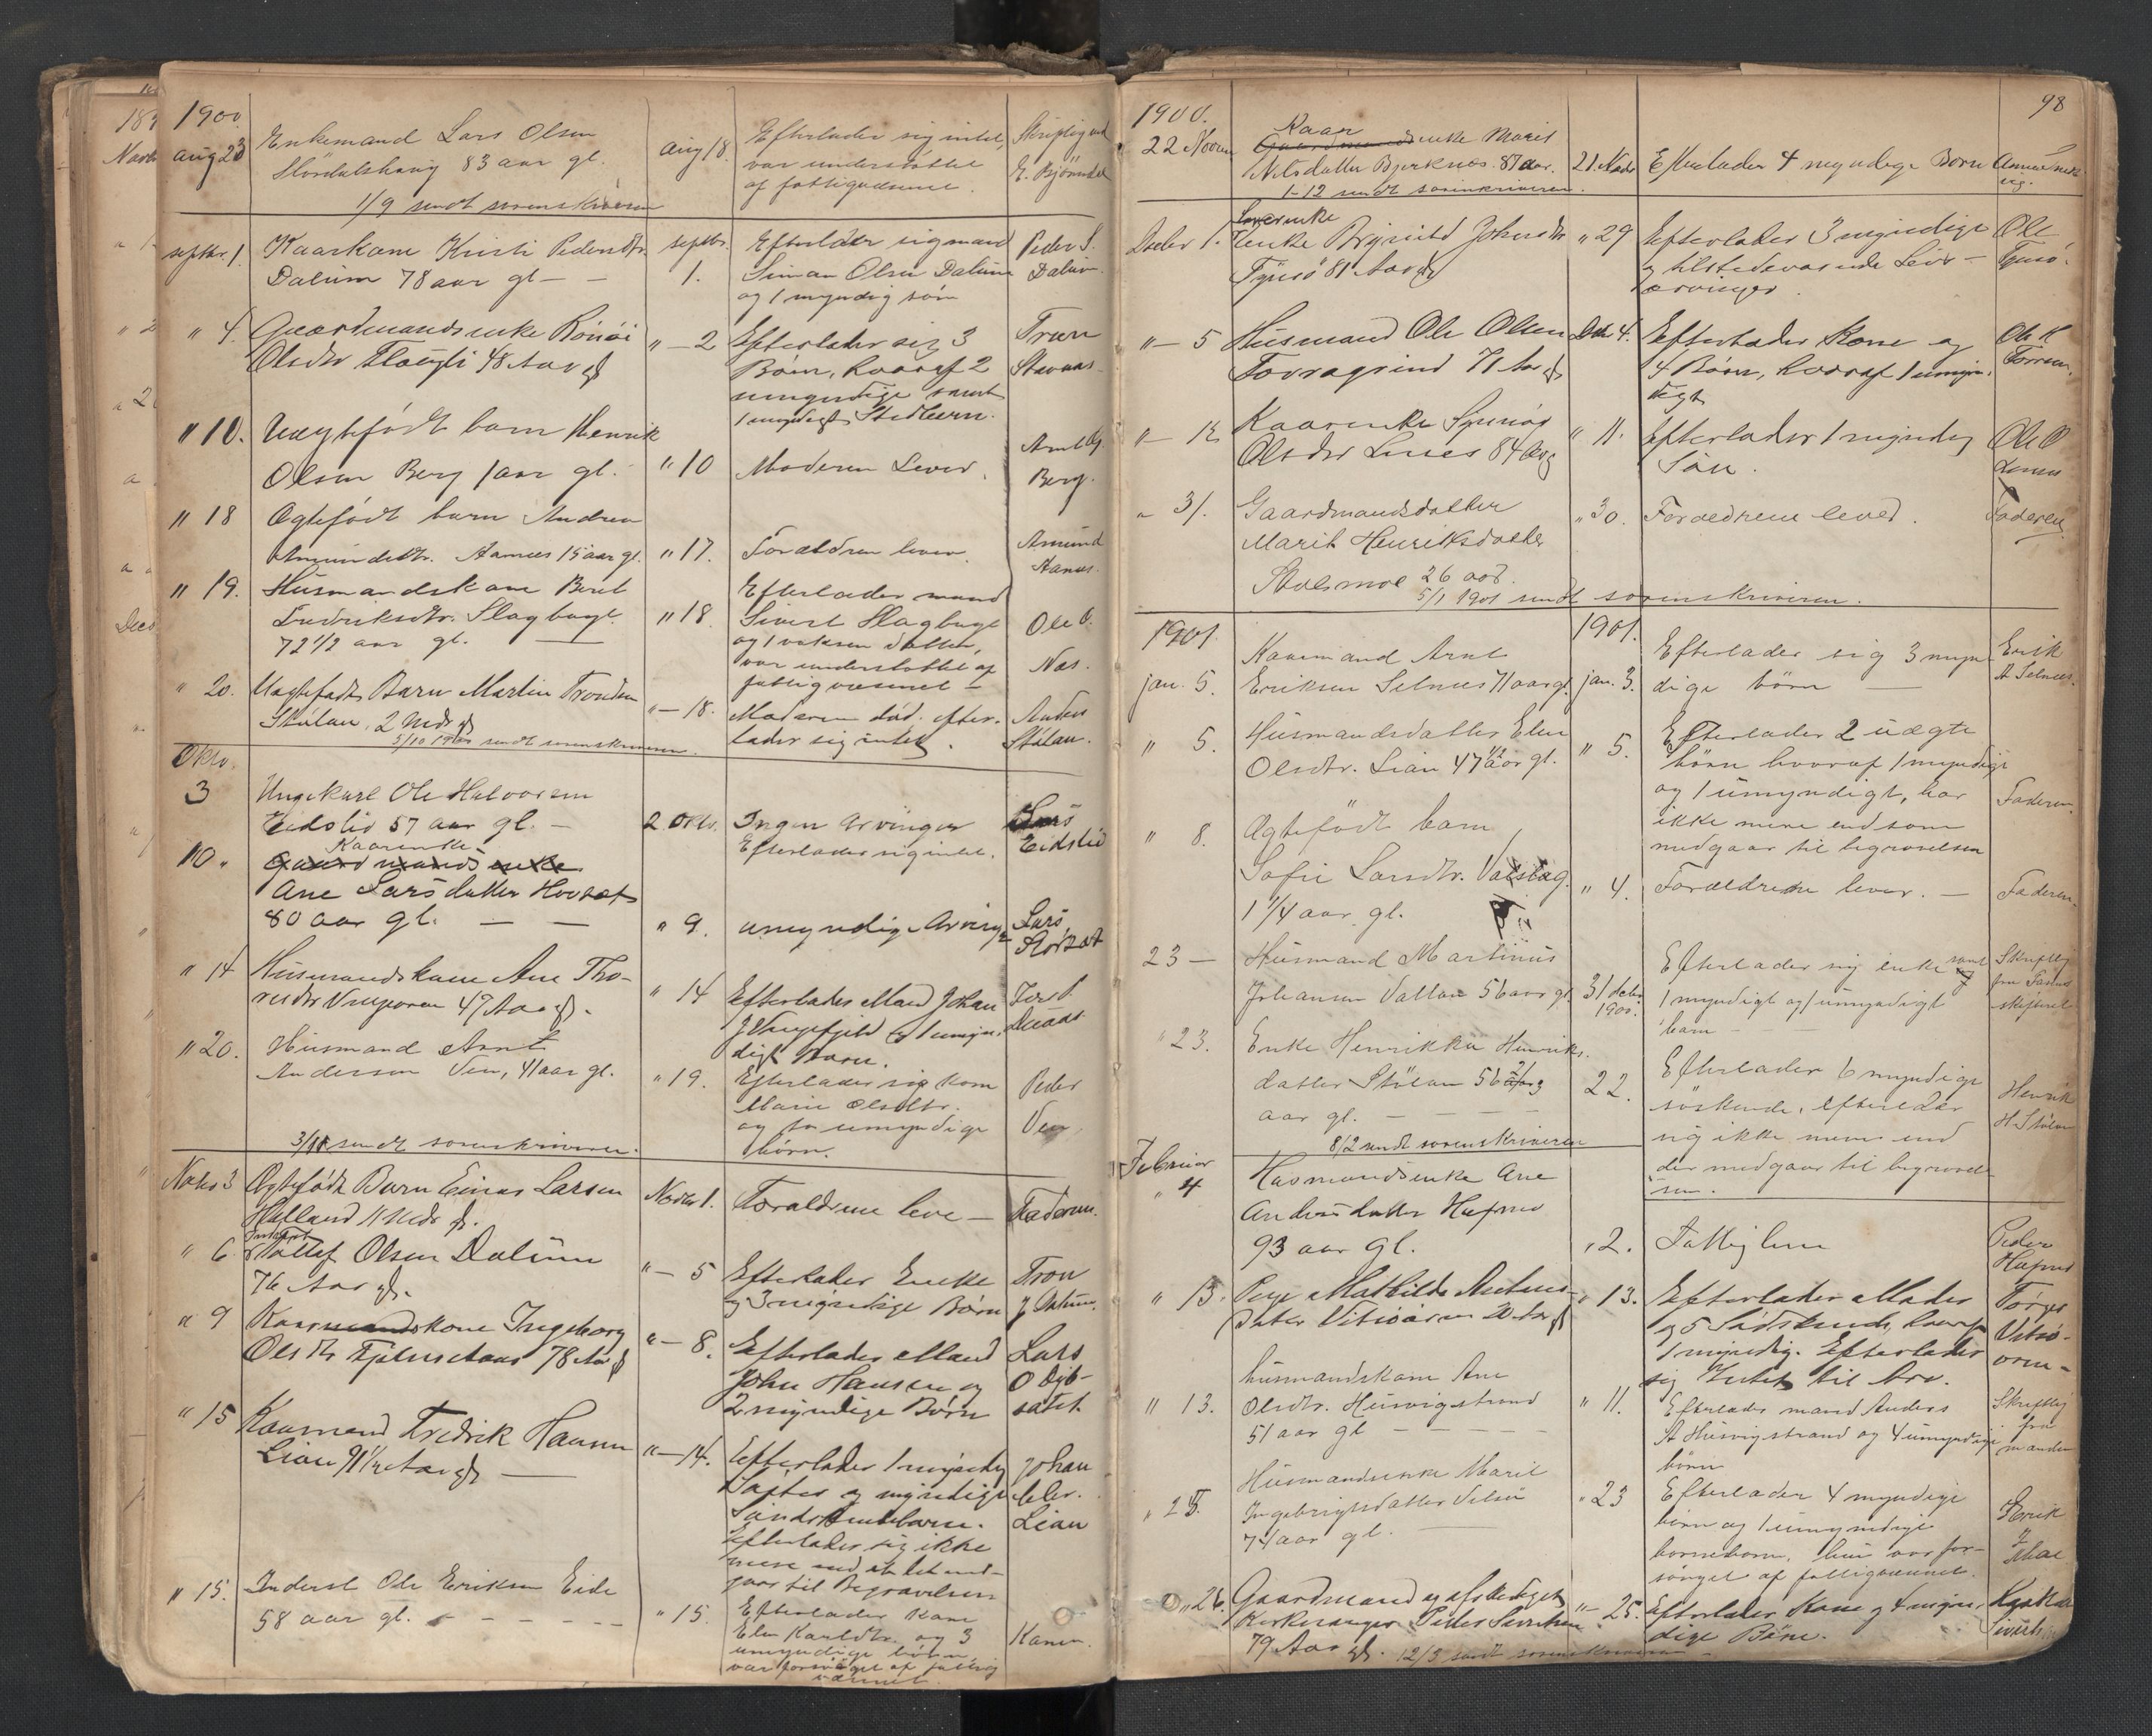 1900.
aug 23
Enkemand Lars Olsen
Stördalshaug 83 aar gl.
aug 18.
Efterlader sig intet,
var understöttet
af fattigvæsenet.
Skriftlig ved
E. Bjömdal
1/9 sendt sorenskriveren
septbr. 1.
Kaarkone Kristi Pedersdtr.
Dalum 78 aar gl - -
septbr.
1.
Efterlader sig mand
Simon Olsen Dalum
og 1 myndig sön
Peder S.
Dalum.
" 4.
Gaardmandsenke
Olsdtr 48 Aar gl
" - 2
Efterlader sig 3
Börn, hvoraf 2
umyndige samt
1 myndigt Stedbarn.
Tron
Stavaas
" 10.
Uægtefödt barn Henrik
Olsen Berg 1 aar gl.
" 10
Moderen Lever.
Arnt
Berg.
" 18
Ægtefödt barn Andrea
Amundsdtr. Aamus 15 aar gl.
" 17.
Forældren lever.
Amund
Aamus.
" 19.
Husmandskone Berit
Fredriksdtr. Slagbugt
72 1/2 aar gl.
" 18
Efterlader mand
Sivert Slagbugt
og 1 voksen datter,
var understöttet af
fattigvæsenet -
Ole O.
Næs.
" 20.
Uægtefödt Barn Martin Trondsen
Stölan, 2 Mdr gl
" - 18.
Moderen död. efter-
lader sig intet.
Anders
Stölan.
5/10 1900 sendt sorenskriveren.
Oktr.
3
Ungkarl Ole Halvorsen
Eidslid 57 aar gl. -
2 Oktr.
Ingen Arvinger
Efterlader sig intet.
Lars
Eidslid
10 "
Kaarenke
Gaardmandsenke
Ane Larsdatter Hovsæt
80 aar gl. - -
" 9.
umyndige Arvinger
Lars
" 14
Husmandskone Ane Tho-
47 Aar gl.
" 14
Efterlader Mand Johan
og 1 umyn-
digt Barn.
" 20.
Husmand Arnt
Andersen Ven, 41 aar gl.
" 19.
Efterlader sig kone
Marie Olsdtr.
og to umyndige
börn.
Peder
Ven.
3/11 sendt sorenskriveren.
Novbr 3
Ægtefödt Barn Einar Larsen
Halland 11 Mdr gl.
Novbr 1.
Forældrene leve -
Faderen.
" 6
Inderst
Tollef Olsen Dalum
76 Aar gl.
" - 5
Efterlader Enke
og 3 myndige Börn
Tron
J Dalum.
" 9
Kaarmandskone Ingeborg
Olsdtr 78 Aar gl
" - 8.
Efterlader Mand
John Hansen og
2 myndige Börn
Lars
O Dyb-
" 15
Kaarmand Fredrik Hansen
Lian 91 1/2 Aar gl
" - 14.
Efterlader 1 myndig
Datter og myndige
Efterlader sig ikke
mere end at det med-
gaar til Begravelsen
Johan
Lian
" 15.
Inderst Ole Eriksen Eide
58 aar gl. - - - - -
" 15.
Efterlader kone
Elen Karlsdtr. og 3
umyndige börn,
var forsörget af fattig
væsenet.
Konen.
98
1900.
22 Novem
Kaar
Gaardmandsenke Marit
Nilsdatter Bjerknes. 87 aar.
21. Novbr
Efterlader 4 myndige Börn
1-12 sendt sorenskriveren.
Decbr 1.
Enke Brynild Johnsdtr
81 Aar gl
" 29
Efterlader 3 myndige
og tilstedeværende Livs-
arvinger.
Ole
" - 5
Husmand Ole Olsen
71 Aar gl
Dcb 4.
Efterlader Kone og
4 Börn, hvoraf 1 umyn-
digt
Ole
" - 12
Kaarenke Synnöv
Olsdtr Lines 84 Aar
" 11.
Efterlader 1 myndig
Sön.
Ole O
" 31.
Gaardmandsdatter
Marit Henriksdatter
Stolsmoe 26 aar.
" 30.
Forældrene lever.
Faderen
5/1 1901 sendt sorenskriveren.
1901.
jan. 5.
Kaarmand Arnt
Eriksen Selnes 71 aar gl.
1901.
jan. 3.
Efterlader sig 3 myn-
dige börn -
Erik
A Selnes.
" 5.
Husmandsdatter Elen
Olsdtr. Lian 47 1/2 aar gl.
" 5.
Efterlader 2 uægte
börn hvoraf 1 myndigt
og 1 umyndigt, har
ikke mere end som
medgaar til begravelsen
Faderen.
" 8.
Ægtefödt barn
Sofie Larsdtr. Valslag.
1 1/4 aar gl.
" 4.
Forældrene lever. -
Faderen.
23 -
Husmand Martinus
Johansen Vallan 56 aar gl.
31 decbr.
1900.
Efterlader sig enke samt
1 myndigt og 1 umyndigt
barn - - -
Skriftlig
fra
" 23.
Enke Henrikka Henriks-
datter Stölan 56 2/3
aar gl. - - - -
22.
Efterlader 6 myndige
söskende, efterlader
sig ikke mere end
der medgaar til begravel-
sen.
Henrik
H. Stölan
8/2 sendt sorenskriveren
Februar
" 4
Husmandsenke Ane
Andersdatter Hafnes
93 aar gl.
" 2.
Fattiglem
Peder
Hafnes
" 13.
Pige Mathilde
datter 20 Aar gl
" 13.
Efterlader Moder
og 5 Södskende, hvoraf
1 myndig. Efterlader
sig Intet til Arv.
" 13.
husmandskone Ane
Olsdtr. Husvigstrand
51 aar gl - - - -
" 11.
Efterlader mand Anders
A Husvigstrand og 4 umyndige
börn
Skriftlig
fra
manden
" 25.
Husmandsenke Marit
Ingebrigtsdatter
74 aar gl.
" 23
Efterlader 4 myndige
börn og 1 umyndige
barnebarn, hun var for-
sörget af fattigvæsenet.
Erik
" 26.
Gaardmand og afskediget
Kirkesanger Peder Sivertsen
79 Aar gl.
" - 25.
Efterlader Kone og 4 myn-
dige Börn.
12/3 sendt sorenskriveren